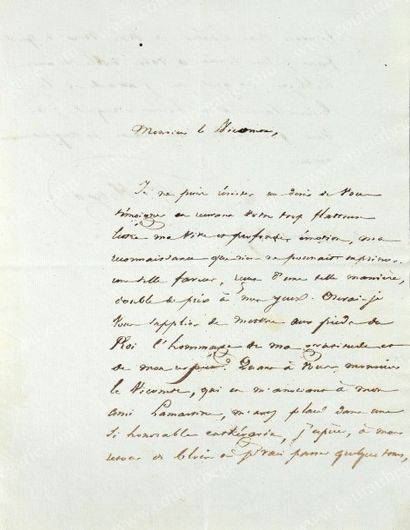 Monsieur le Vicomte,
Je ne puis résister au désir de vous
témoigner en recevant votre trop flatteuse
lettre ma vive et profonde émotion, ma
reconnaissance que rien ne pourrait exprimer.
une telle faveur, reçue d'une telle manière,
double de prix à mes yeux. Oserai-je
vous supplier de mettre aux pieds du
Roi l'hommage de ma gratitude et
de mon respect? Quant à vous, monsieur
le Vicomte, qui en m'associant à mon
ami Lamartine, m'avez placé dans une
si honorable catégorie, j'espère, à mon
retour de Blois où j'irai passer quelque tems,